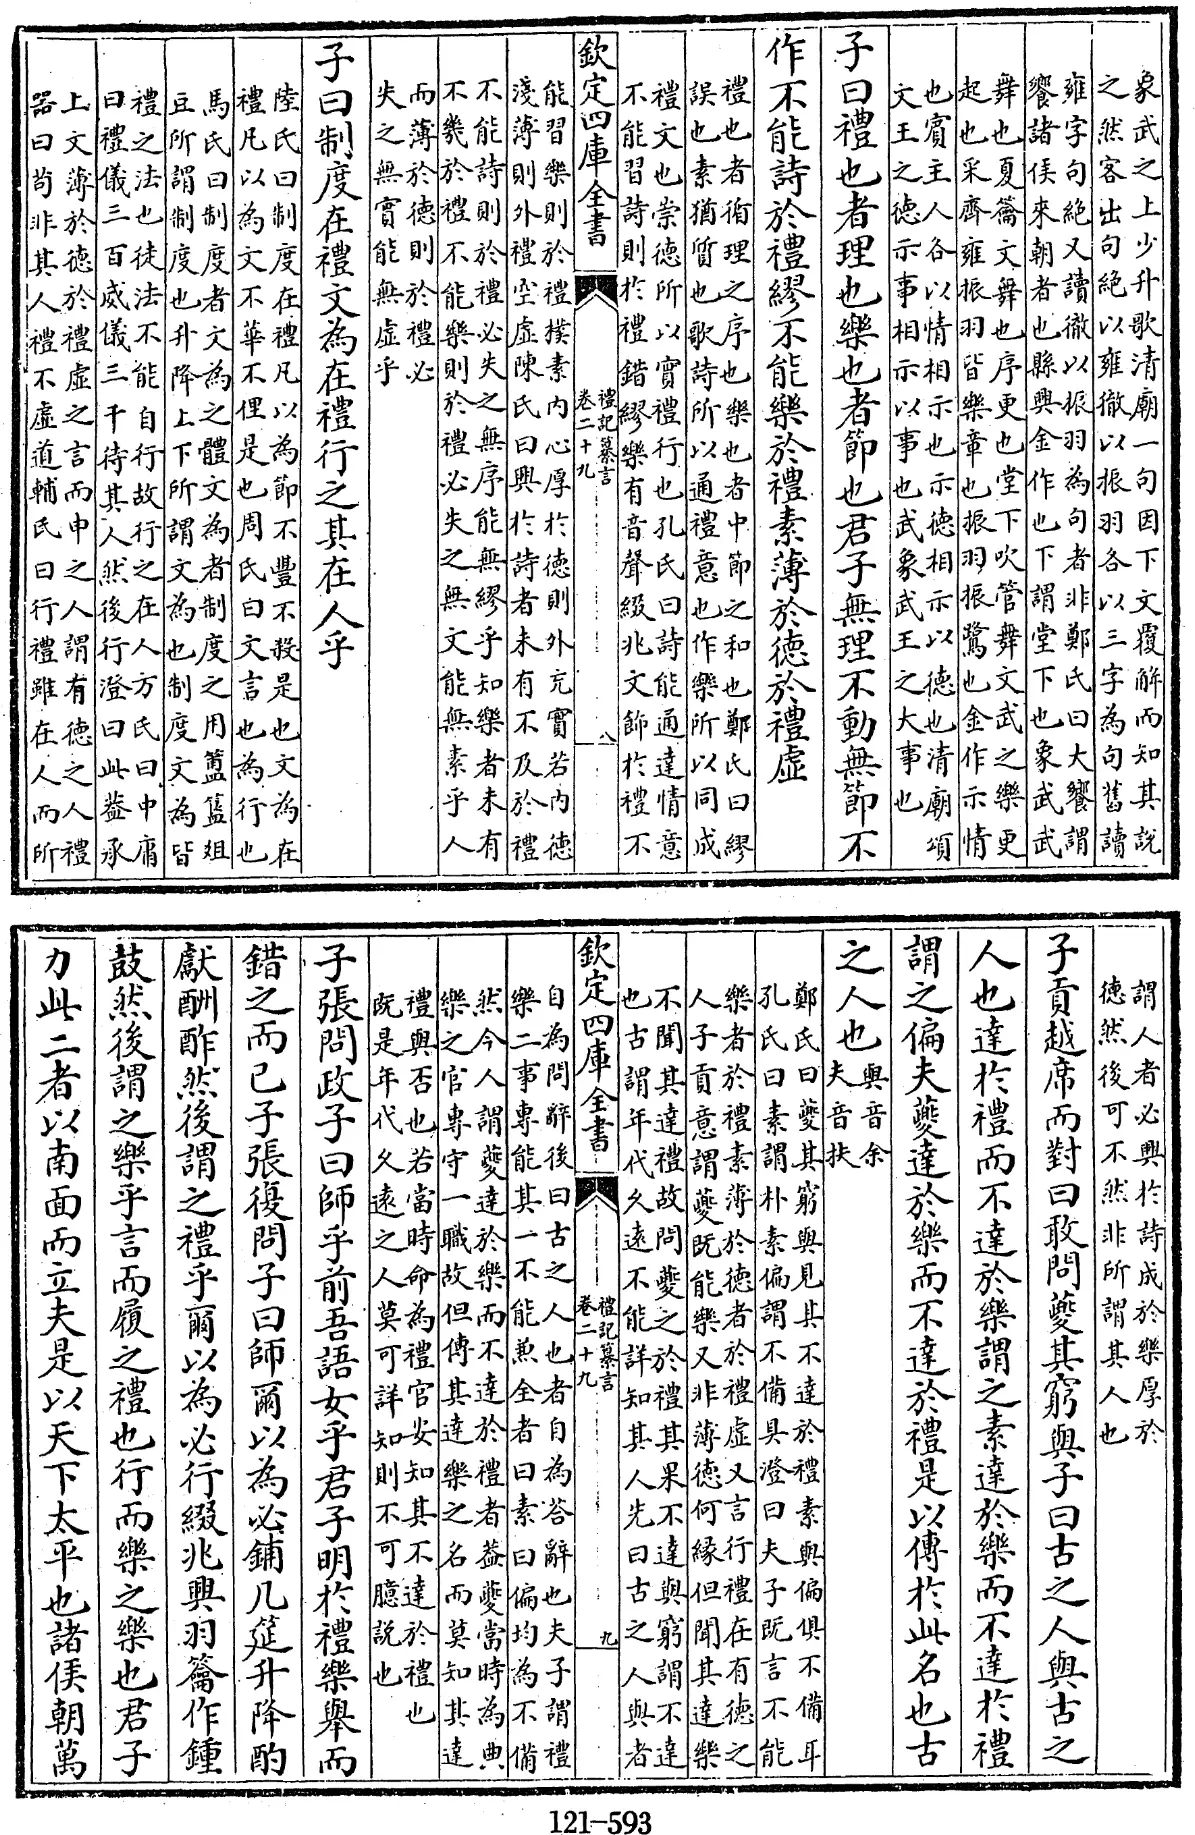 象武之上少升歌清廟一句因下文覆解而知其說
之然客出句絶以雍徹以振羽各以三字為句舊讀
雍字句絶又讀徹以振羽為句者非鄭氏曰大饗謂
饗諸侯來朝者也縣興金作也下謂堂下也象武武
舞也夏籥文舞也序更也堂下吹管舞文武之樂更
起也采齊雍振羽皆樂章也振羽振鷺也金作示情
也賓主人各以情相示也示德相示以德也清廟頌
文王之德示事相示以事也武象武王之大事也
子曰禮也者理也樂也者節也君子無理不動無節不
作不能詩於禮繆不能樂於禮素薄於德於禮虛
禮也者循理之序也樂也者中節之和也鄭氏曰繆
誤也素猶質也歌詩所以通禮意也作樂所以同成
禮文也崇德所以實禮行也孔氏曰詩能通達情意
不能習詩則於禮錯繆樂有音聲綴兆文飾於禮不
欽定四庫全書
禮記纂言
卷二十九
八
能習樂則於禮撲素内心厚於德則外充實若内德
淺薄則外禮空虛陳氏曰興於詩者未有不及於禮
不能詩則於禮必失之無序能無繆乎知樂者未有
不幾於禮不能樂則於禮必失之無文能無素乎人
而薄於德則於禮必
失之無實能無虛乎
子曰制度在禮文為在禮行之其在人乎
陸氏曰制度在禮凡以為節不豐不殺是也文為在
禮凡以為文不華不俚是也周氏曰文言也為行也
馬氏曰制度者文為之體文為者制度之用簠簋俎
豆所謂制度也升降上下所謂文為也制度文為皆
禮之法也徒法不能自行故行之在人方氏曰中庸
曰禮儀三百威儀三千待其人然後行澄曰此蓋承
上文薄於德於禮虛之言而申之人謂有德之人禮
器曰苟非其人禮不虛道輔氏曰行禮雖在人而所
謂人者必興於詩成於樂厚於
德然後可不然非所謂其人也
子貢越席而對曰敢問夔其窮與子曰古之人與古之
人也達於禮而不達於樂謂之素達於樂而不達於禮
謂之偏夫夔達於樂而不達於禮是以傳於此名也古
之人也
與音余
夫音扶
鄭氏曰夔其窮與見其不達於禮素與偏俱不備耳
孔氏曰素謂朴素偏謂不備具澄曰夫子既言不能
樂者於禮素薄於德者於禮虛又言行禮在有德之
人子貢意謂夔既能樂又非薄德何緣但聞其達樂
不聞其達禮故問夔之於禮其果不達與窮謂不達
也古謂年代久遠不能詳知其人先曰古之人與者
欽定四庫全書
禮記纂言
卷二十九
九
自為問辭後曰古之人也者自為答辭也夫子謂禮
樂二事專能其一不能兼全者曰素曰偏均為不備
然今人謂夔達於樂而不達於禮者蓋夔當時為典
樂之官專守一職故但傳其達樂之名而莫知其達
禮與否也若當時命為禮官安知其不達於禮也
既是年代久遠之人莫可詳知則不可臆說也
子張問政子曰師乎前吾語女乎君子明於禮樂舉而
錯之而已子張復問子曰師爾以為必鋪几筵升降酌
獻酬酢然後謂之禮乎爾以為必行綴兆興羽籥作鍾
鼓然後謂之樂乎言而履之禮也行而樂之樂也君子
力此二者以南面而立夫是以天下太平也諸侯朝萬
121-593